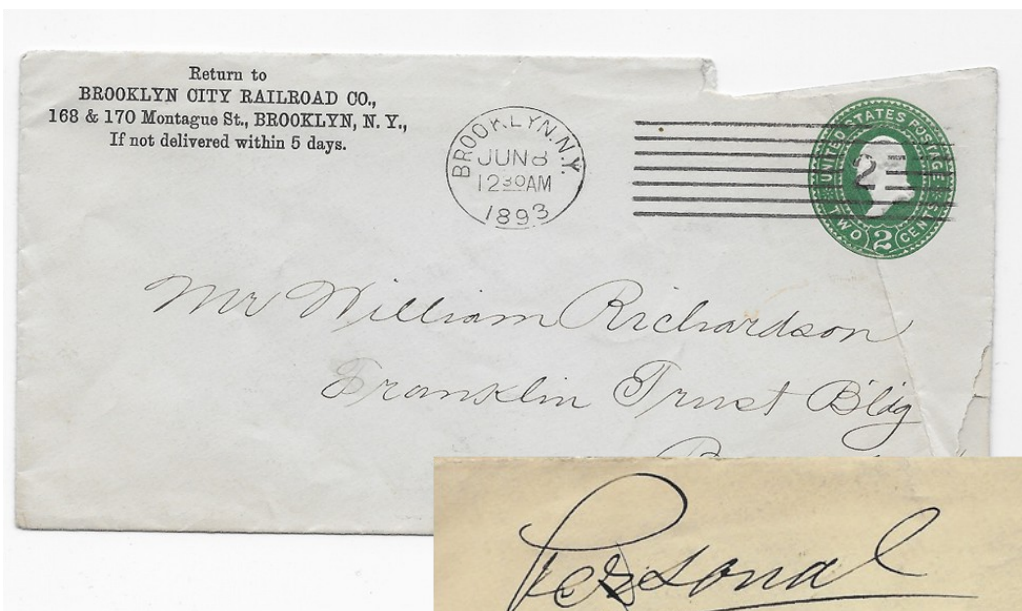 Return to
BROOKLYN CITY RAILROAD CO.,
168 & 170 Montague St., BROOKLYN, N. Y.,
If not delivered within 5 days.
BROOKLYN, N.Y.
JUN 8
12 30 AM
1893
UNITED STATES POSTAGE
2
TWO 2 CENTS
Mr William Richardson
Franklin Trust Bldg
Personal